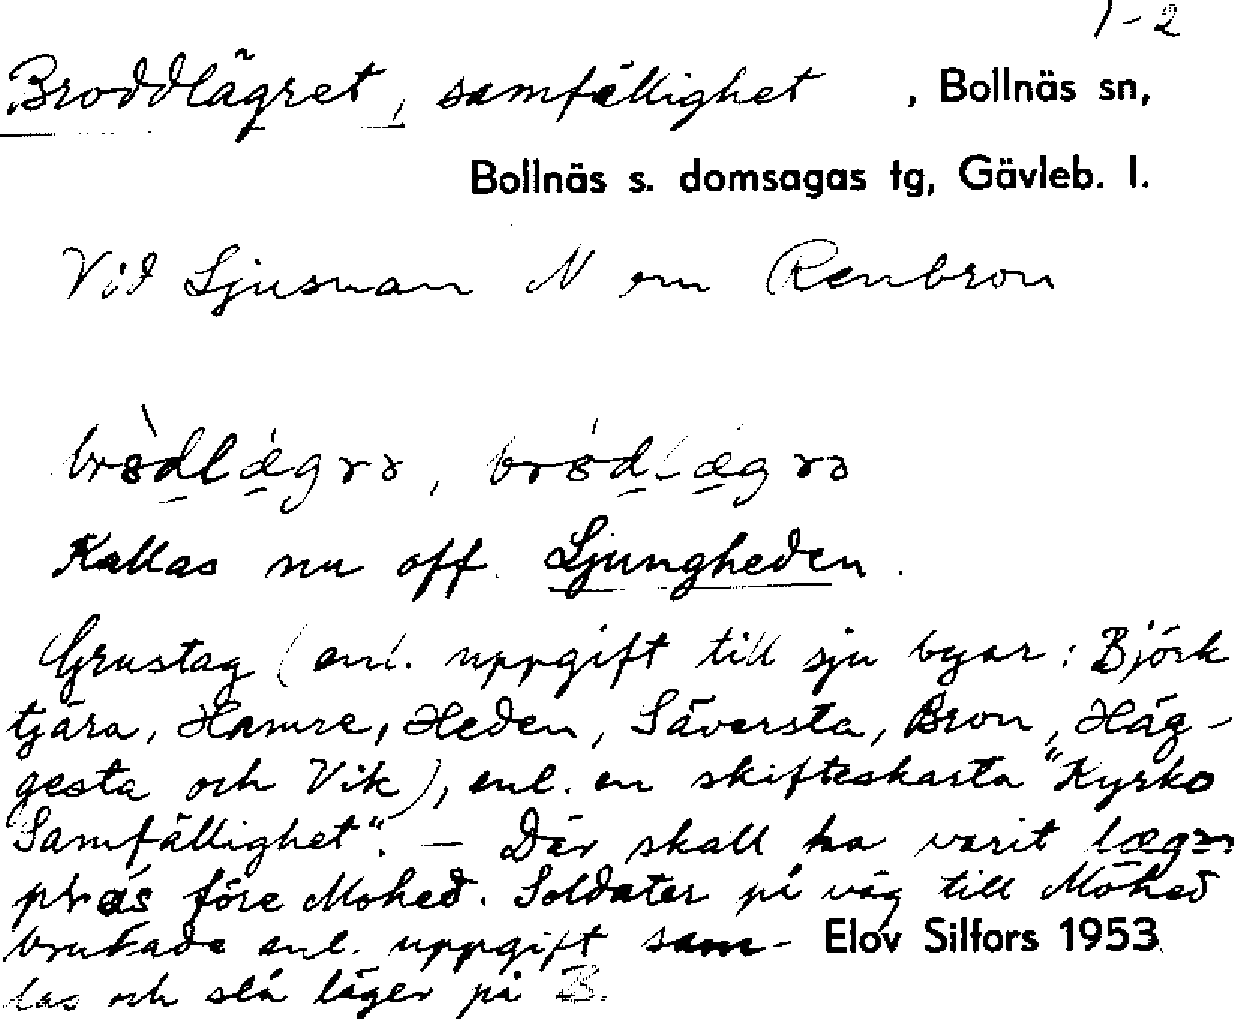 1-2
Broddlägret, samfällighet , Bollnäs sn,
Bollnäs s. domsagas tg, Gävleb. l.
Vid Ljusnan N om Renbron
Kallas nu off. Ljungheden.
Grustag (enl. uppgift till sju byar: Björk
tjära, Hamre, Heden, Säversta, Bron, Häg-
gesta och Vik), enl. en skifteskarta "Kyrko
Samfällighet". – Där skall ha varit lægər
plas före Mohed. Soldater på väg till Mohed
brukade enl. uppgift sam- Elov Silfors 1953
las och slå läger på B.